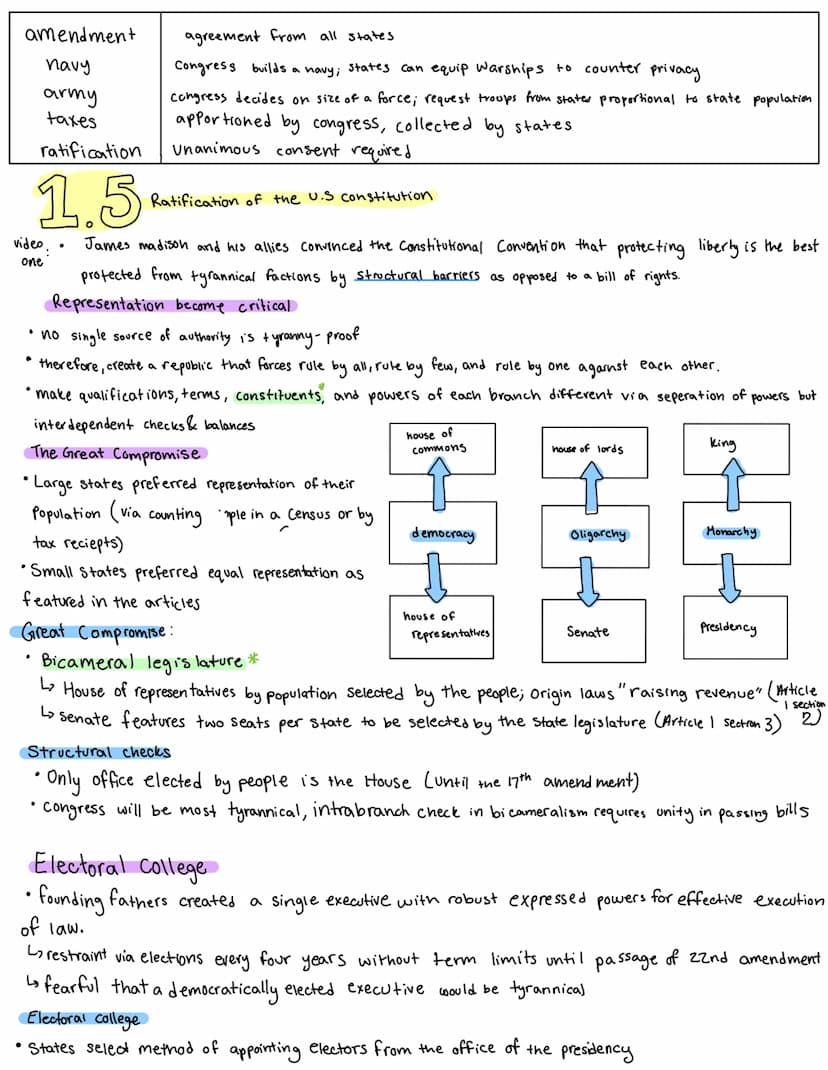 amendment agreement from all states
navy Congress builds a navy; states can equip warships to counter privacy
army congress decides on size of a force; request troups from states proportional to state population
taxes apportioned by congress, collected by states
ratification unanimous consent required
1.5 Ratification of the U.S constitution
video one: • James madison and his allies convinced the Constitutional Convention that protecting liberty is the best
protected from tyrannical factions by structural barriers as opposed to a bill of rights.
Representation become critical
• no single source of authority is tyranny-proof
• therefore, create a republic that forces rule by all, rule by few, and role by one against each other.
• make qualifications, terms, constituents*, and powers of each branch different via seperation of powers but
interdependent checks & balances
The Great Compromise
• Large states preferred representation of their
population (via counting ple in a census or by
tax reciepts)
• Small states preferred equal representation as
featured in the articles
house of commons
house of lords
king
democracy
Oligarchy
Monarchy
house of representatives
Senate
Presidency
Great Compromise:
• Bicameral legislature *
↳ House of representatives by population selected by the people; origin laws "raising revenue" (Article 1 section 2)
↳ senate features two seats per state to be selected by the state legislature (Article 1 section 3)
Structural checks
• Only office elected by people is the House (until the 17th amendment)
• congress will be most tyrannical, intrabranch check in bicameralism requires unity in passing bills
Electoral College
• founding fathers created a single executive with robust expressed powers for effective execution
of law.
↳ restraint via elections every four years without term limits until passage of 22nd amendment
↳ fearful that a democratically elected executive would be tyrannical
Electoral college
• States select method of appointing electors from the office of the presidency